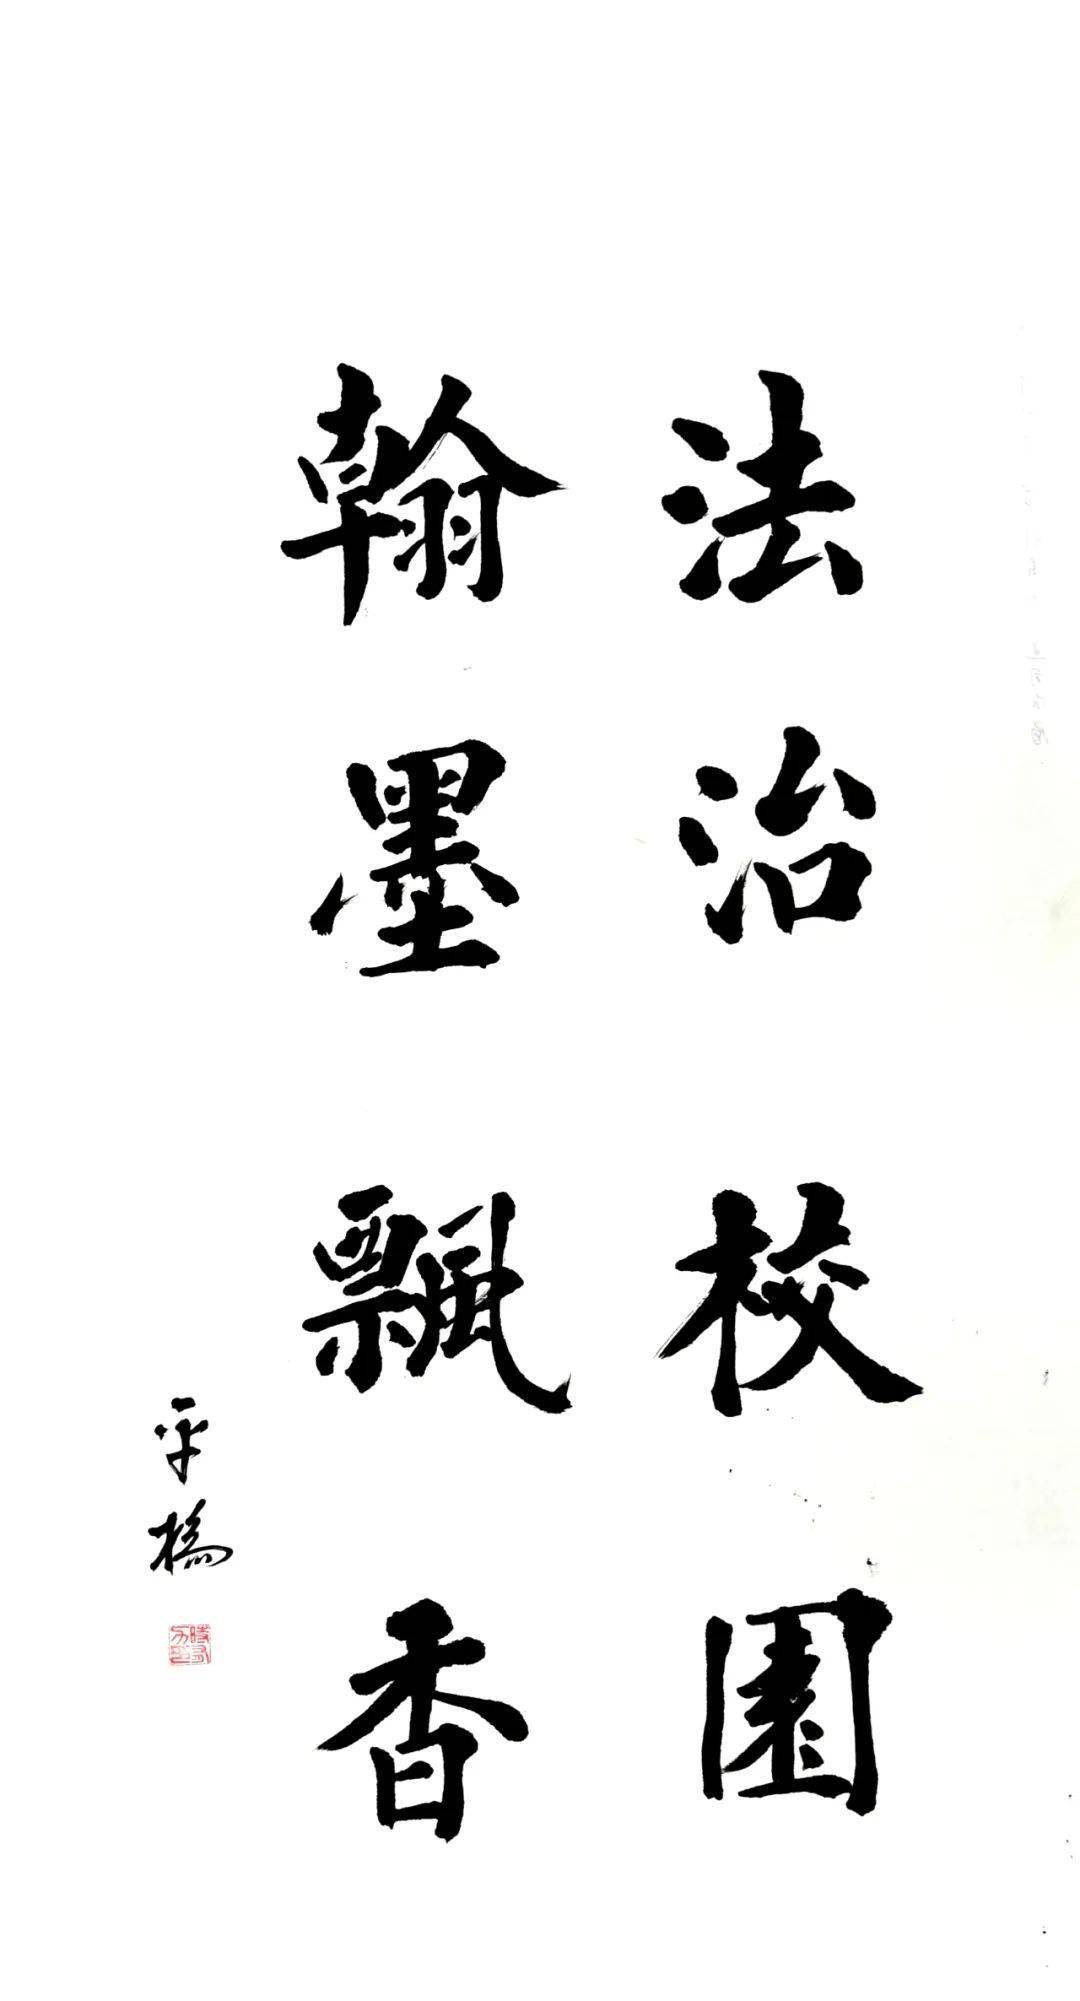 法治校園
翰墨飄香
平橋